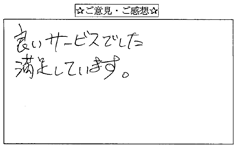 ☆ご意見・ご感想☆
良いサービスでした
満足しています。